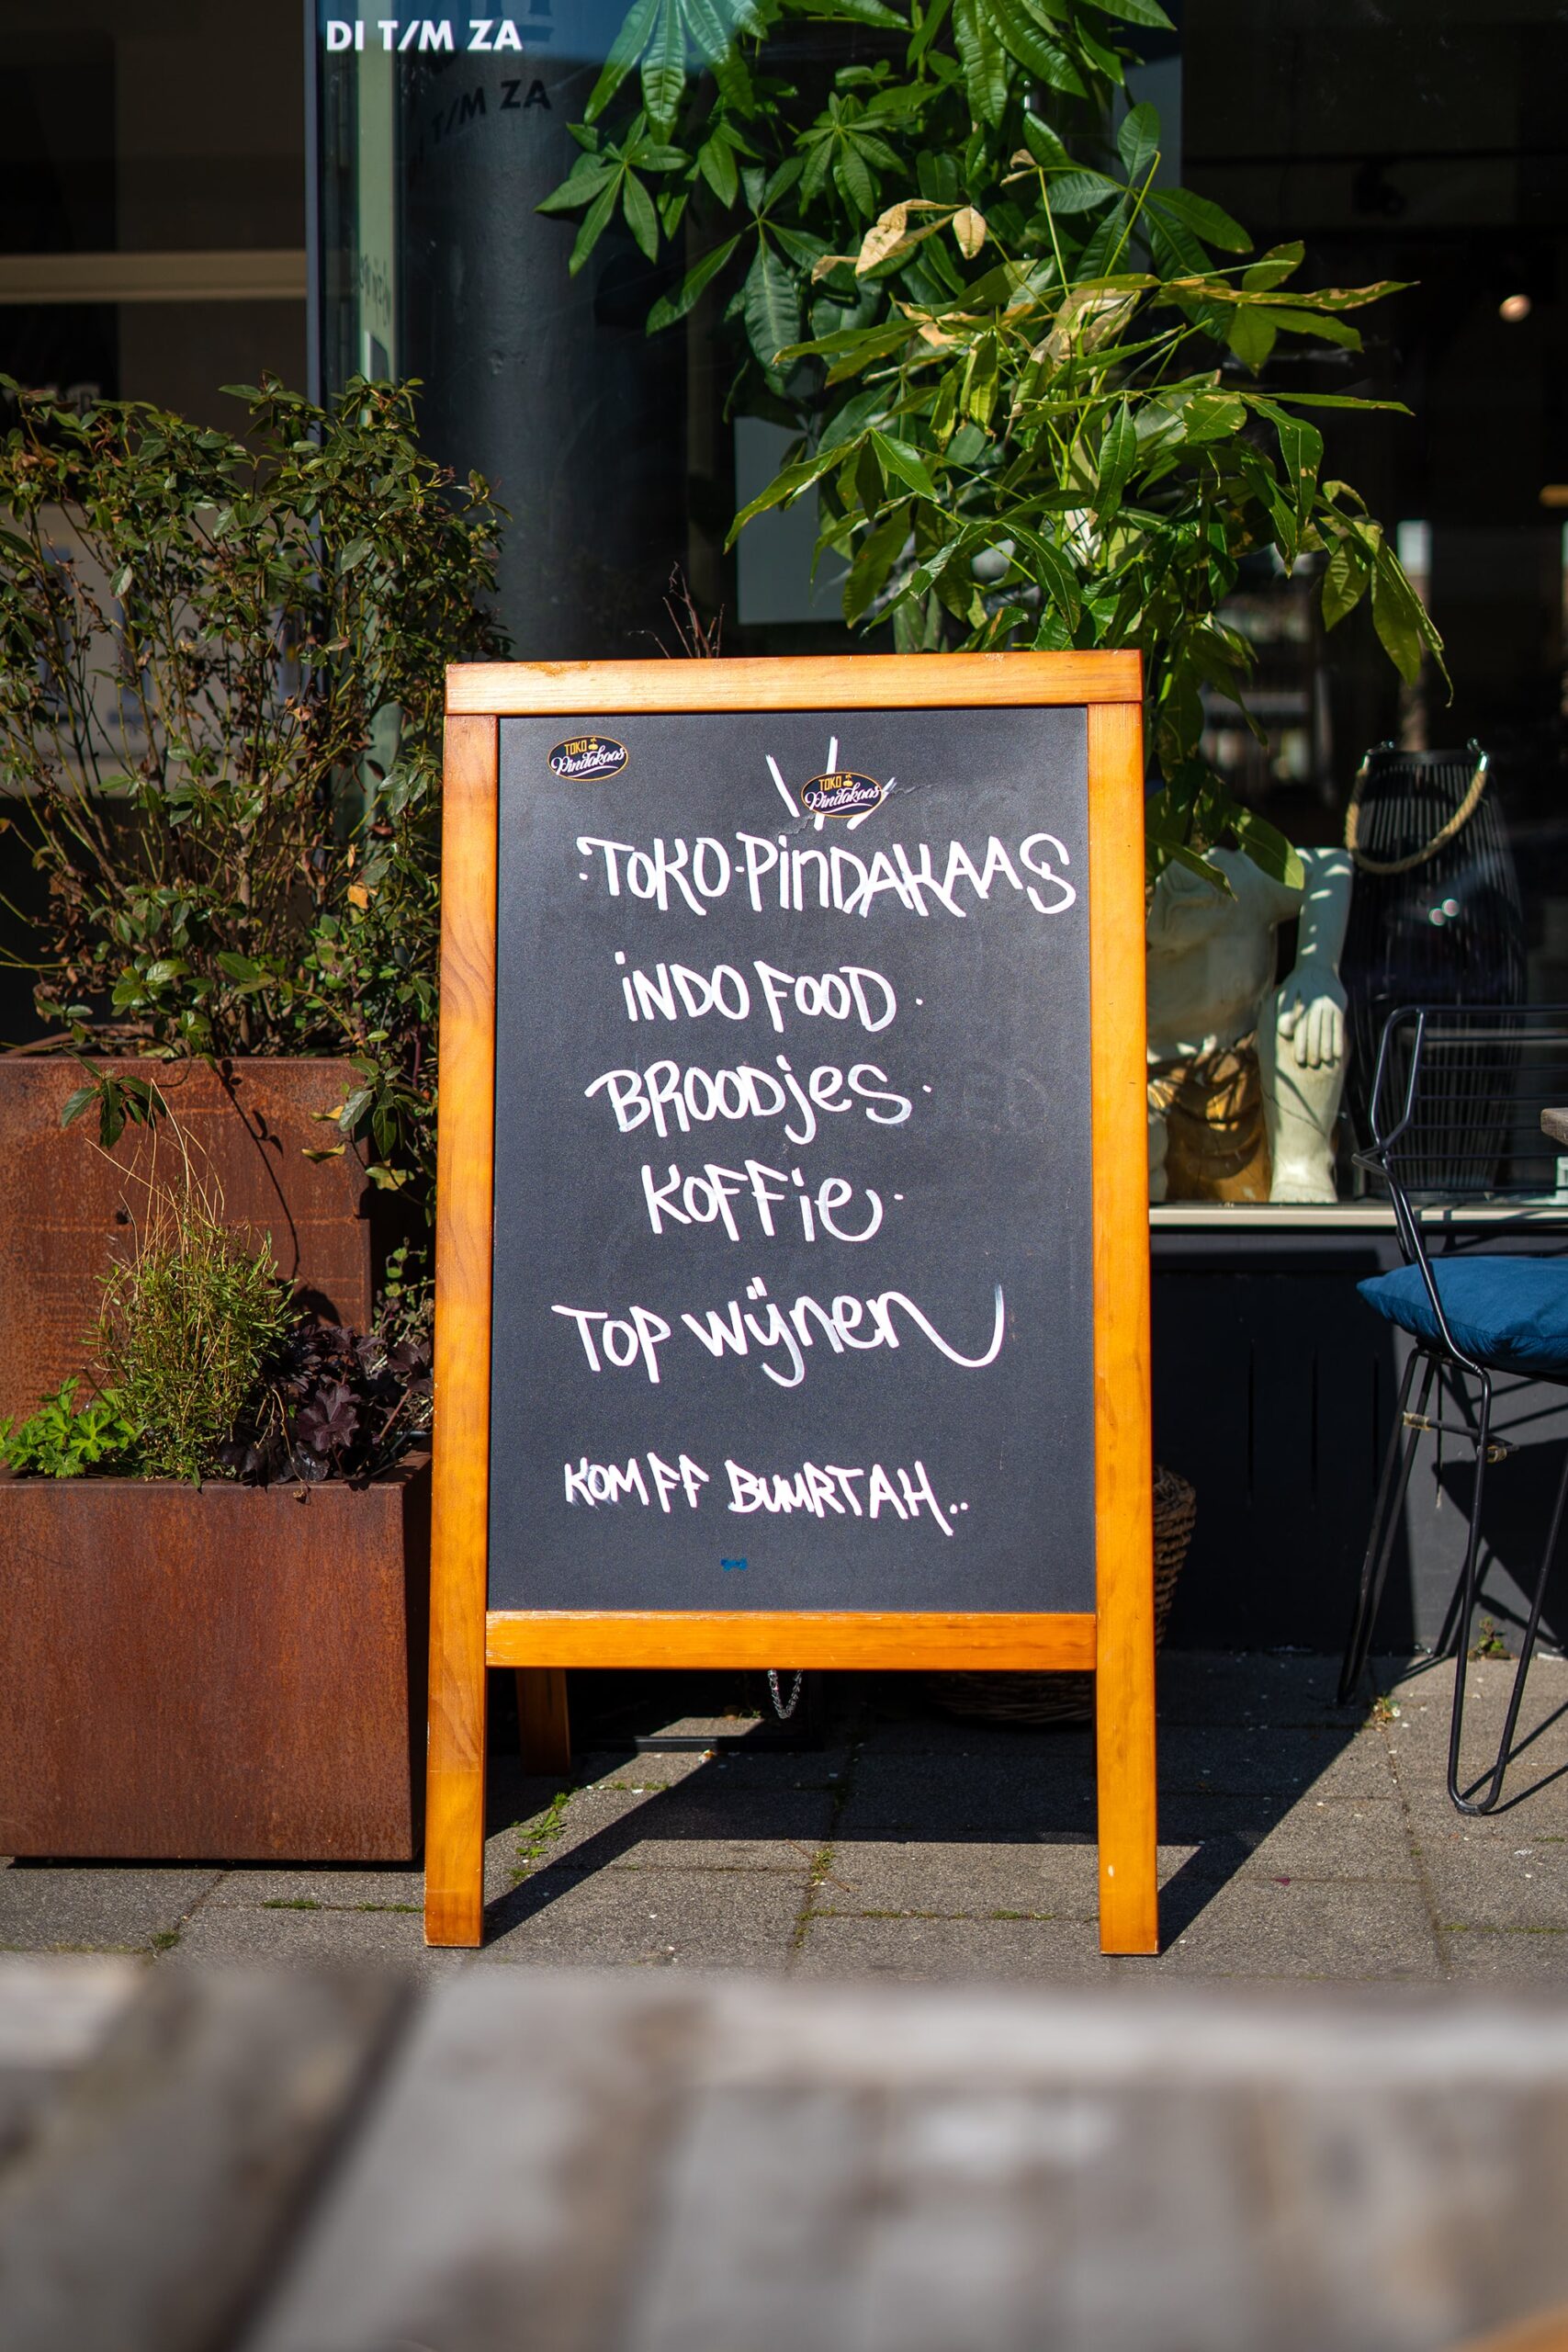 DI T/M ZA
T/M ZA
TOKO
Pindakaas
TOKO
Pindakaas
·TOKO·PINDAKAAS
INDO FOOD ·
BROODjes ·
KOFFie ·
TOP wijnen
KOM FF BUURTAH..